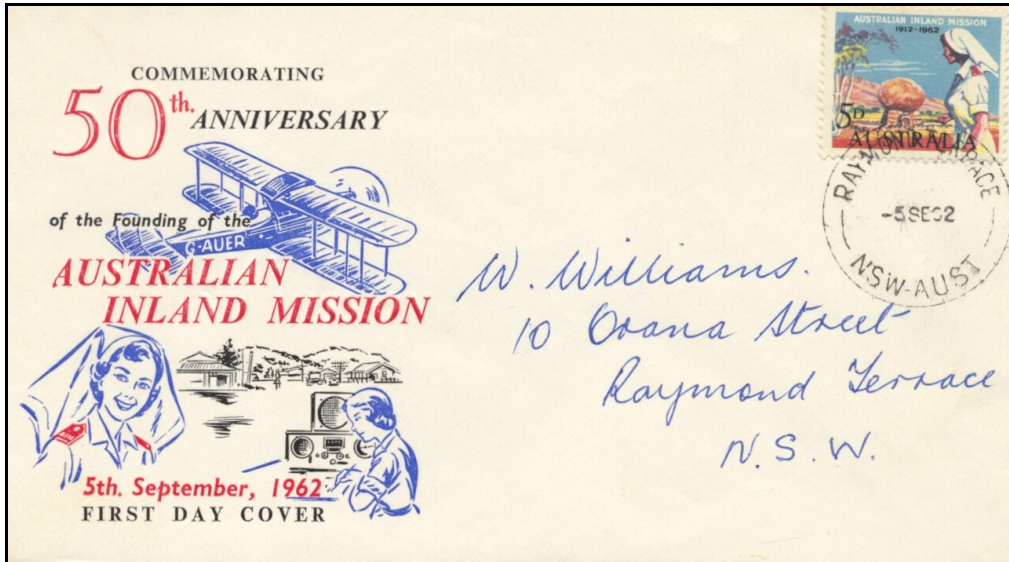 COMMEMORATING
50th. ANNIVERSARY
of the Founding of the
G-AUER
AUSTRALIAN
INLAND MISSION
5th. September, 1962
FIRST DAY COVER
AUSTRALIAN INLAND MISSION
1912-1962
5D
AUSTRALIA
RAYMOND TERRACE
-5SE62
NSW-AUST
W. Williams.
10 Orana Street
Raymond Terrace
N.S.W.